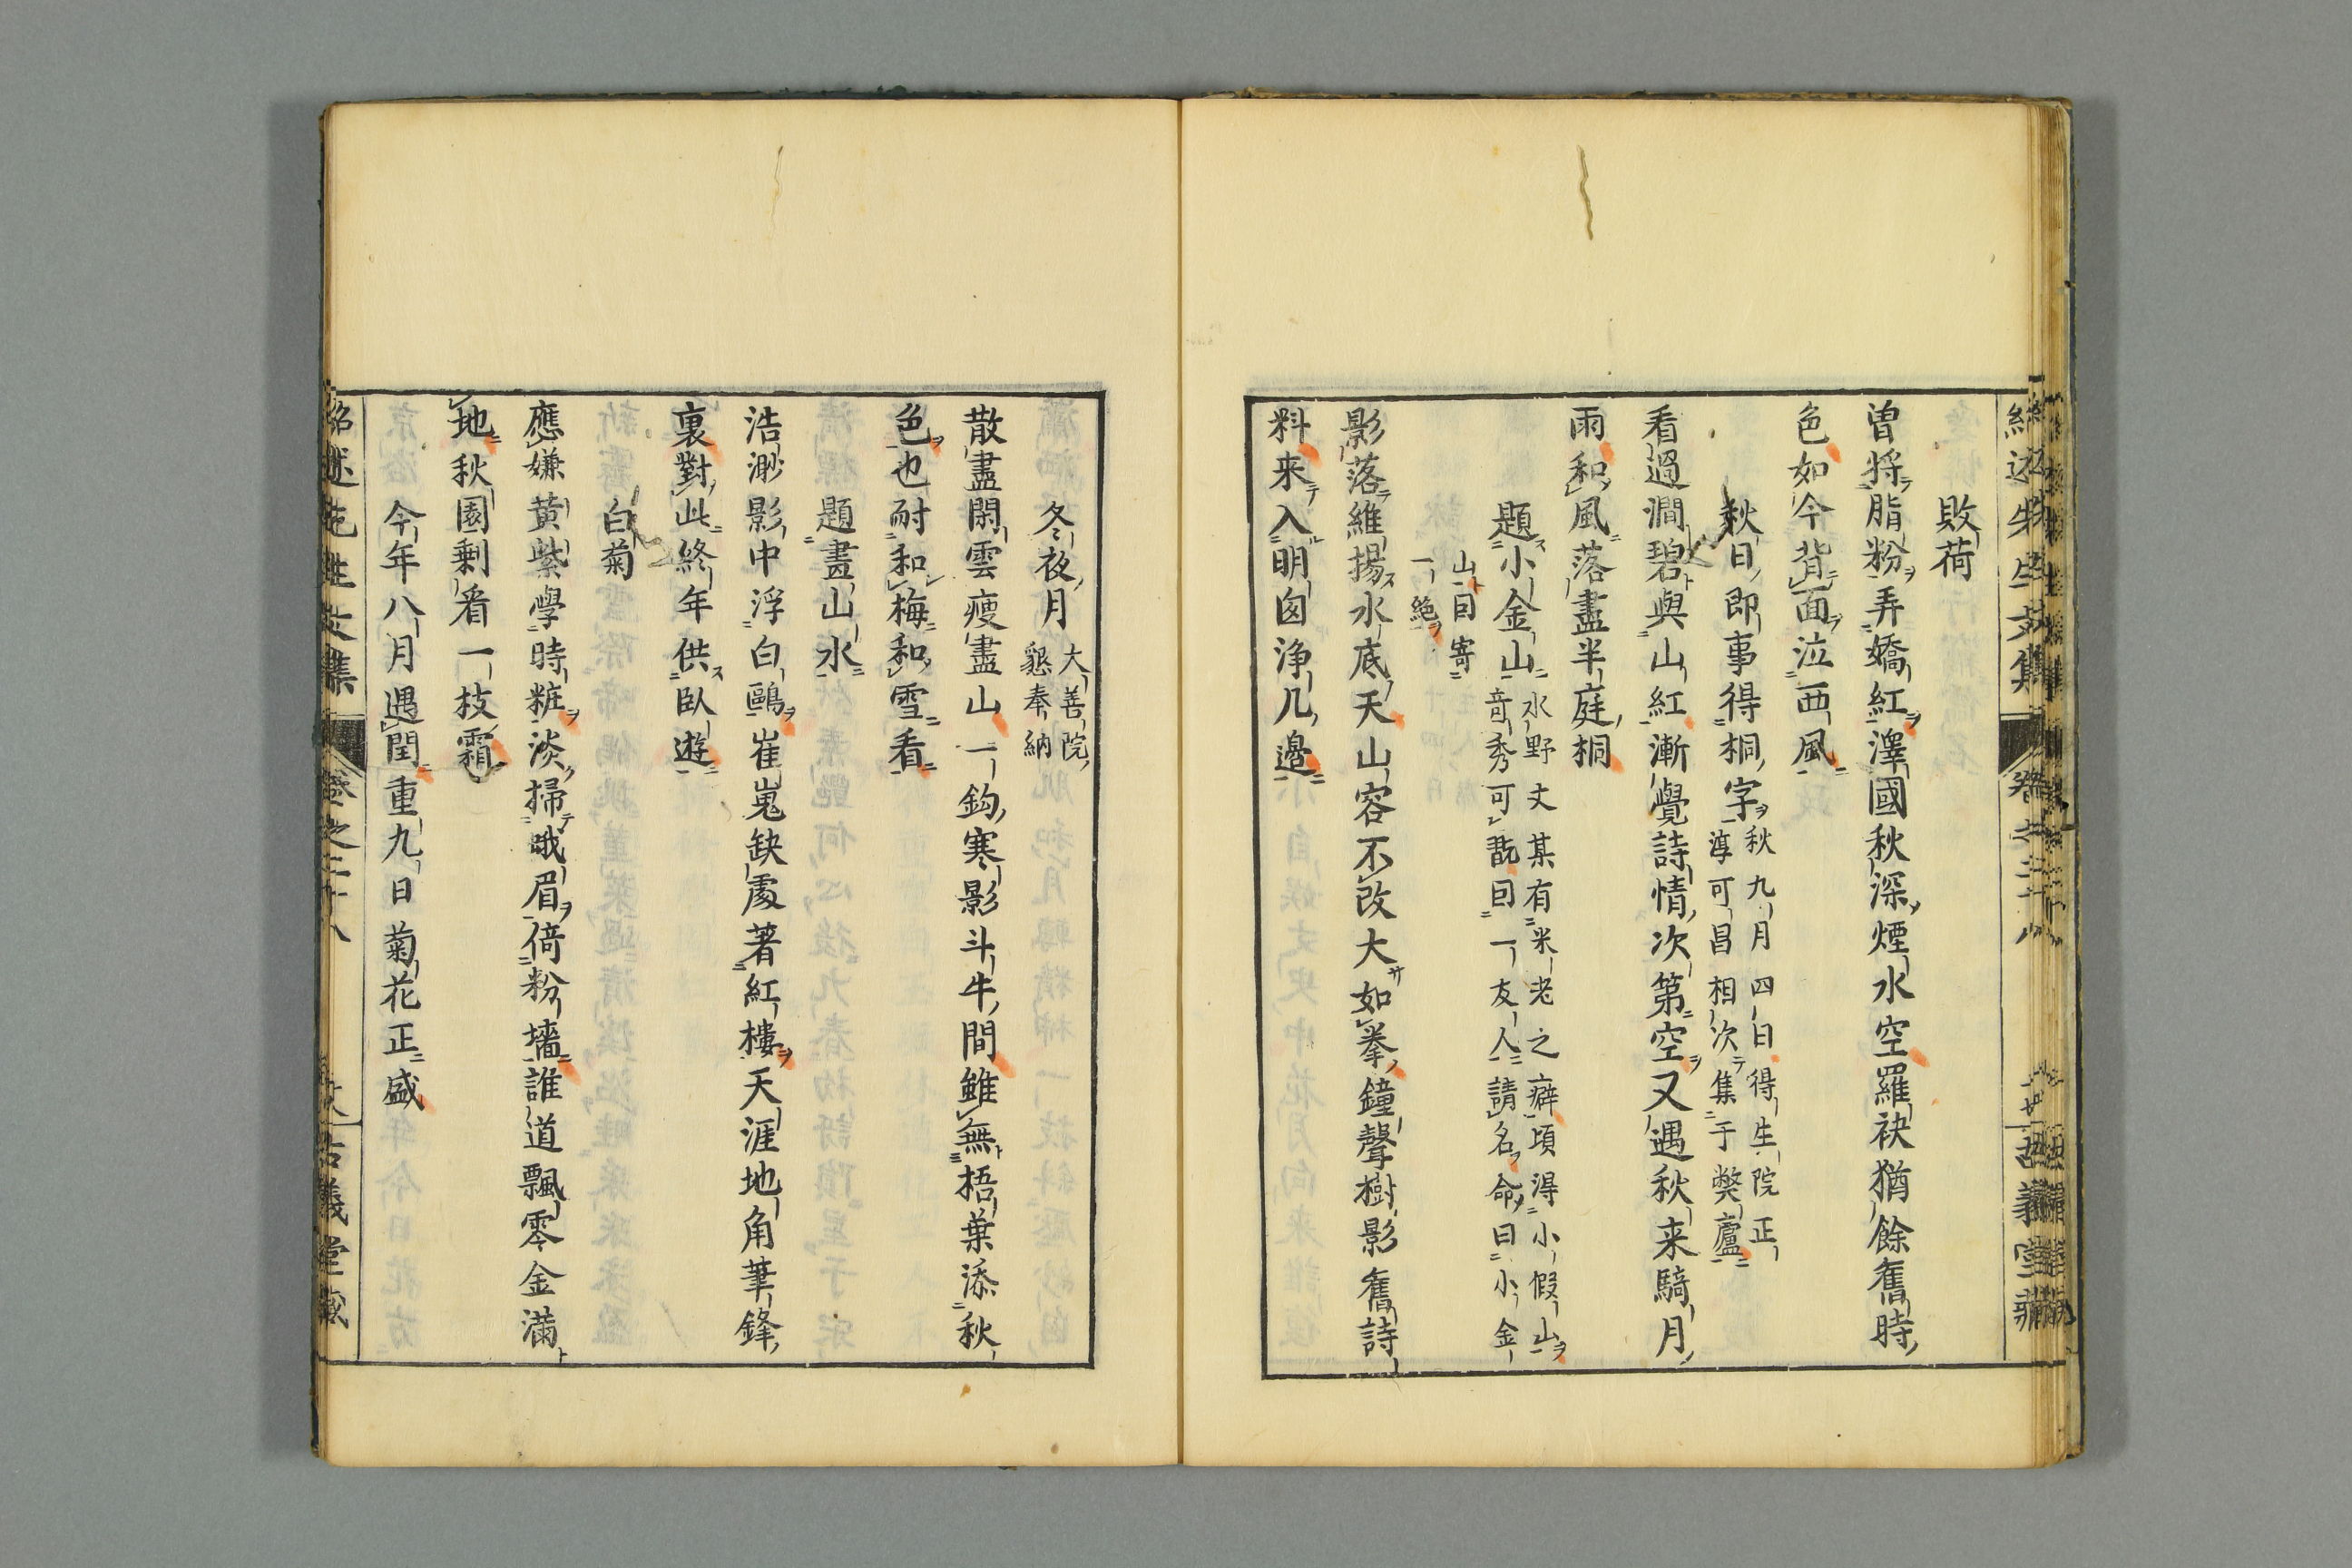 敗荷
曾將脂粉弄嬌紅澤國秋深煙水空羅袂猶餘舊時
色如今背面泣西風
秋日即事得桐字秋九月四日得生院正
淳可昌相次集于弊廬
看過澗碧與山紅漸覺詩情次第空又遇秋来騎月
雨和風落盡半庭桐
題小金山水野丈某有米老之癖頃得小假山
竒秀可翫因一友人請名命曰小金
山因寄
一絶
影落維揚水底天山容不改大如拳鐘聲樹影舊詩
料来入明囱浄几邊
冬夜月大善院
懇奉納
散盡閑雲瘦盡山一鈎寒影斗牛間雖無梧葉添秋
色也耐和梅和雪看
題畫山水
浩渺影中浮白鷗崔嵬缺處著紅樓天涯地角筆鋒
裏對此終年供臥遊
白菊
應嫌黄紫學時粧淡掃蛾眉倚粉墻誰道飄零金満
地秋園剰看一枝霜
今年八月遇閏重九日菊花正盛
紹述先生文集 卷之二十八 古義堂藏